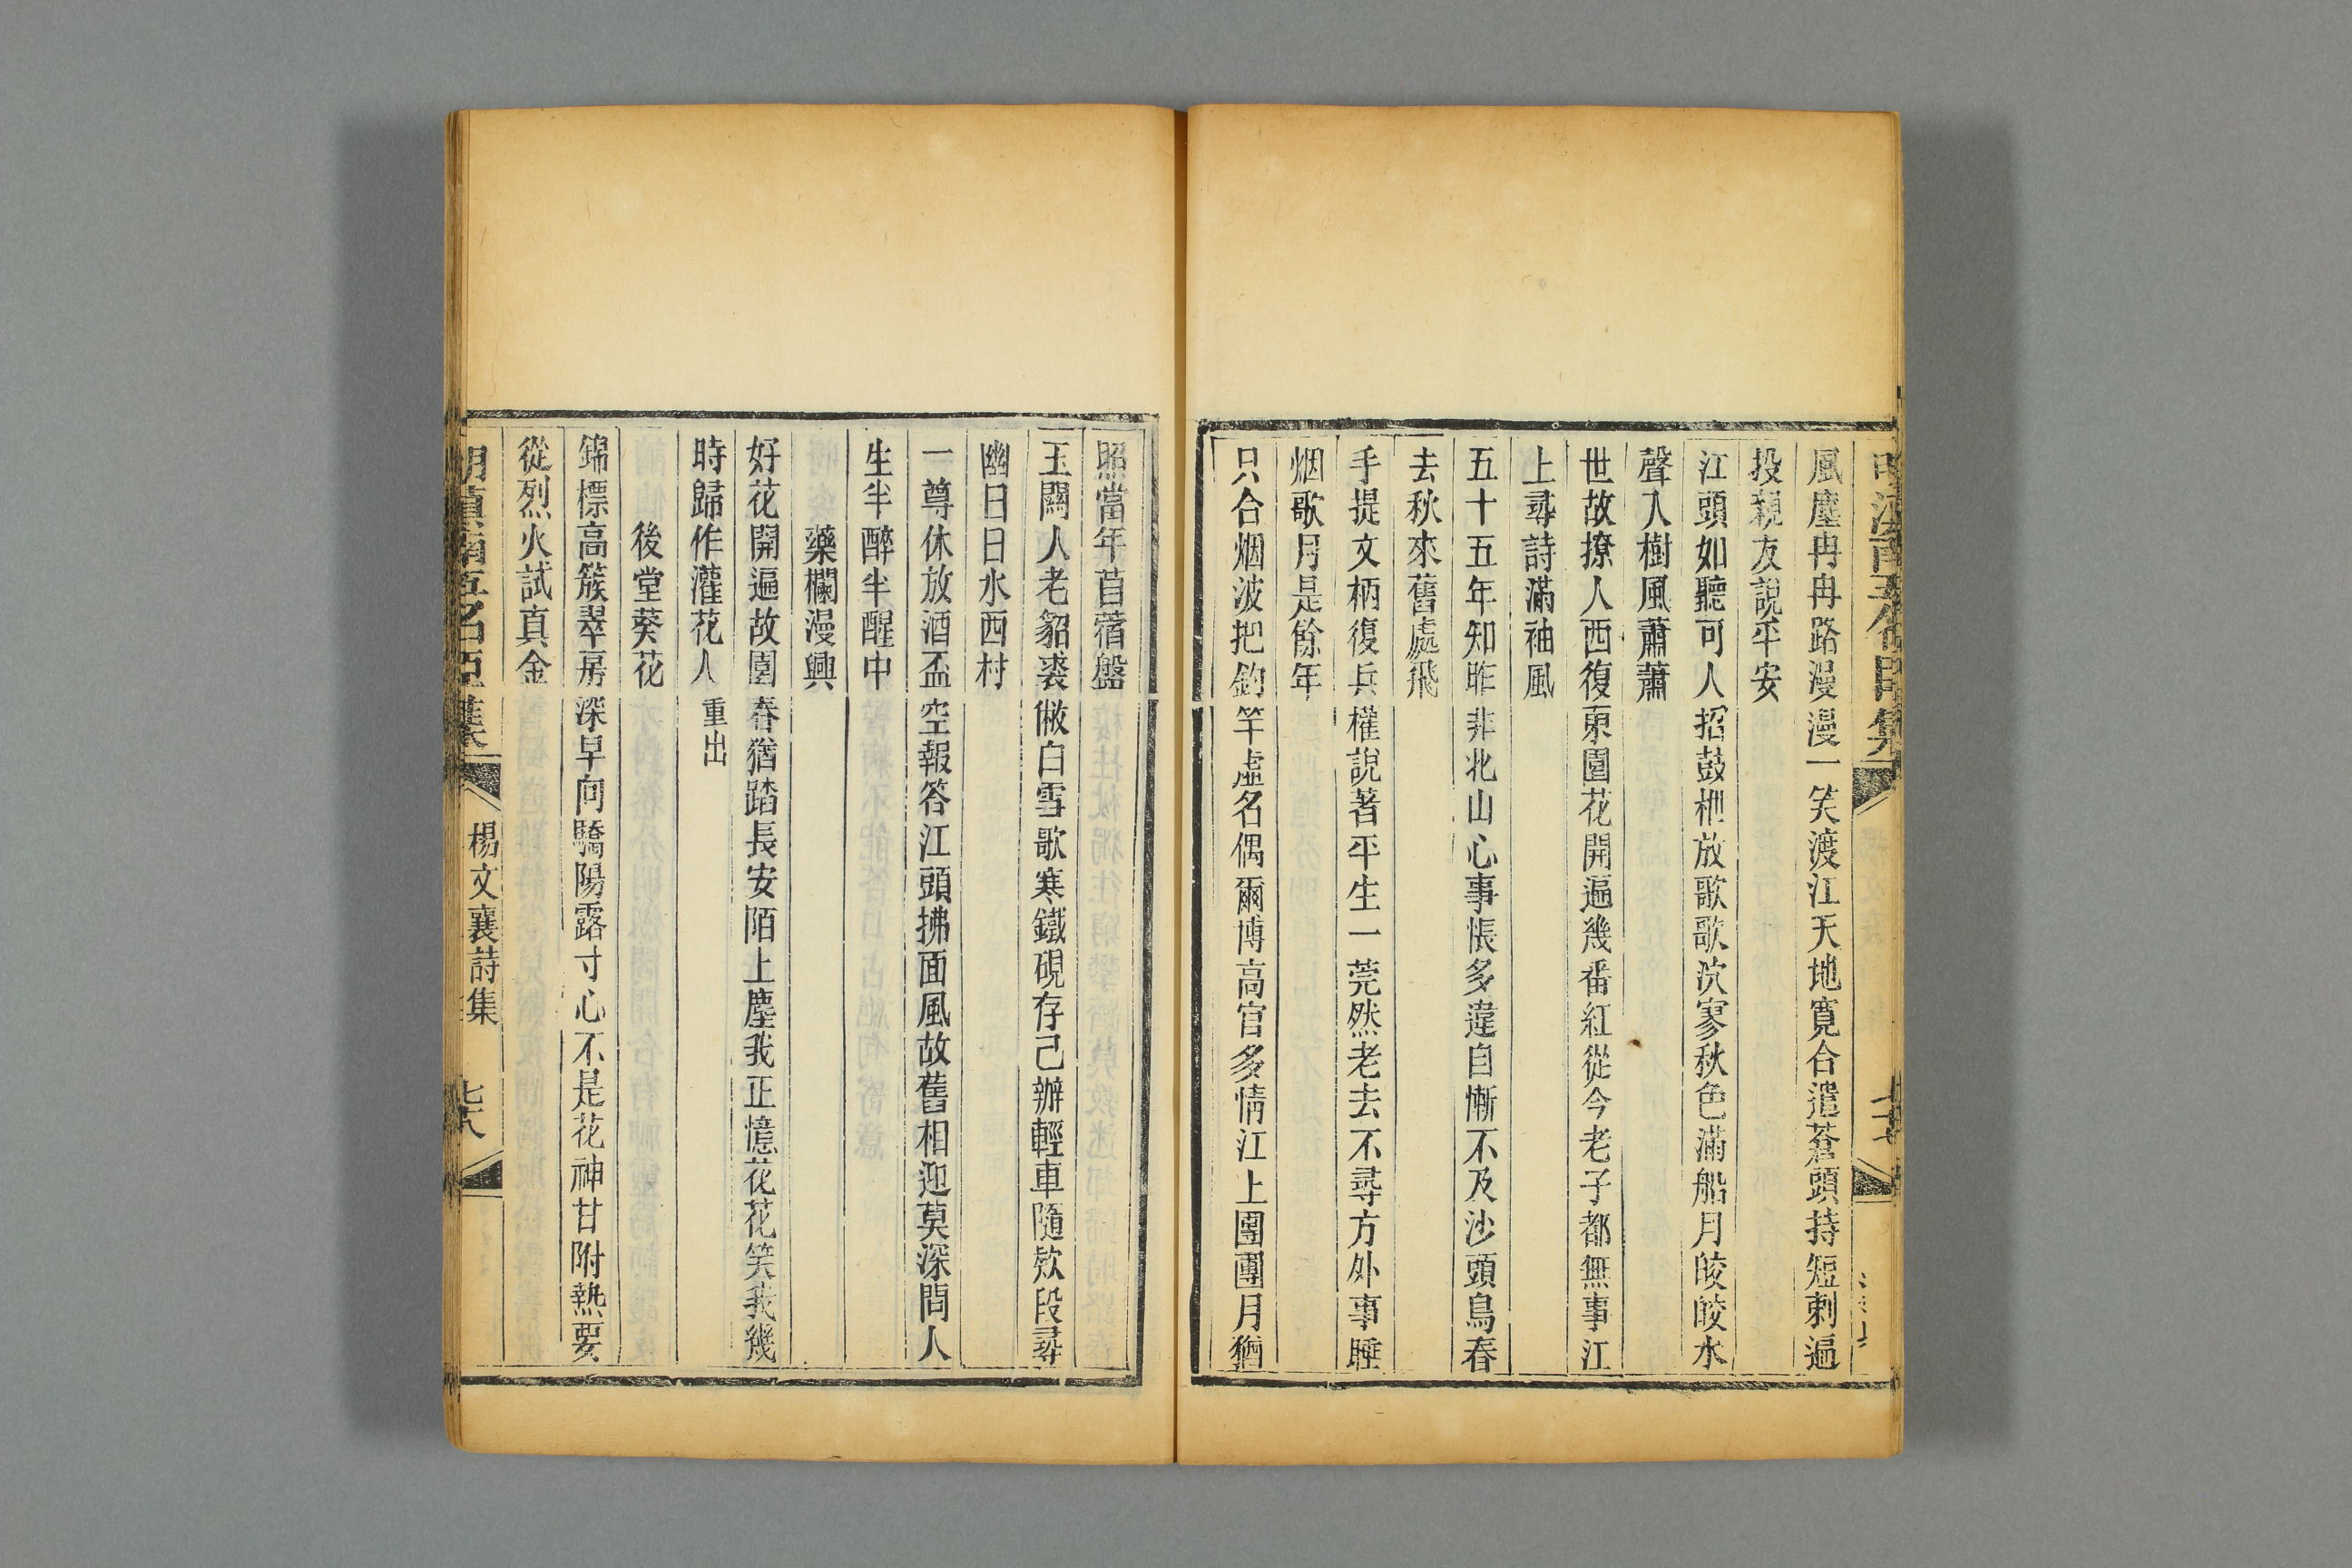 風塵冉冉路漫漫一笑渡江天地寬合遣蒼頭持短刺遍
投親友說平安
江頭如聽可人招鼓枻放歌歌泬寥秋色滿船月皎皎水
聲入樹風蕭蕭
世故撩人西復東園花開遍幾番紅從今老子都無事江
上尋詩滿袖風
五十五年知昨非北山心事悵多違自慚不及沙頭鳥春
去秋來舊處飛
手提文柄復兵權說著平生一莞然老去不尋方外事睡
烟歌月是餘年
只合烟波把釣竿虛名偶爾博高官多情江上團團月猶
照當年苜蓿盤
玉關人老貂裘敝白雪歌寒鐵硯存己辦輕車隨欵段尋
幽日日水西村
一尊休放酒盃空報答江頭拂面風故舊相迎莫深問人
生半醉半醒中
藥欄漫興
好花開遍故園春猶踏長安陌上塵我正憶花花笑我幾
時歸作灌花人 重出
後堂葵花
錦標高簇翠房深早向驕陽露寸心不是花神甘附熱要
從烈火試真金
楊文襄詩集